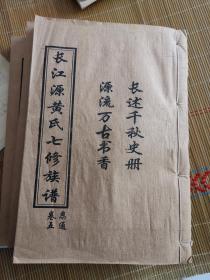 长江源黄氏七修族谱
卷五
长述千秋史册
源流万古书香